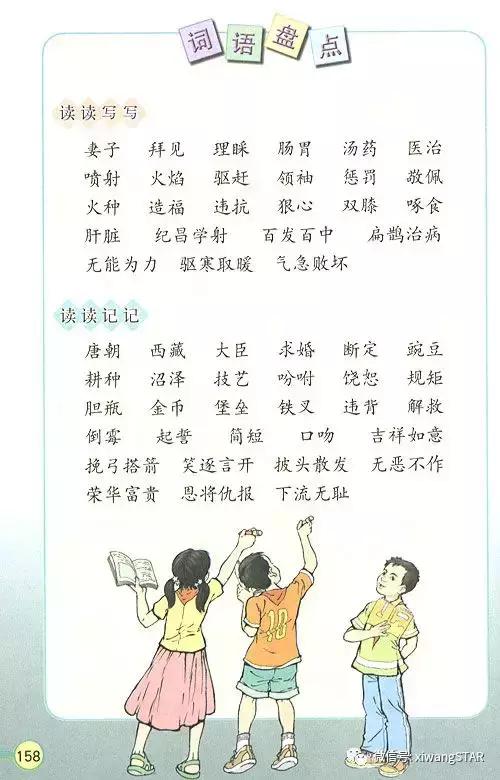 词语盘点
读读写写
妻子 拜见 理睬 肠胃 汤药 医治
喷射 火焰 驱赶 领袖 惩罚 敬佩
火种 造福 违抗 狠心 双膝 啄食
肝脏 纪昌学射 百发百中 扁鹊治病
无能为力 驱寒取暖 气急败坏
读读记记
唐朝 西藏 大臣 求婚 断定 豌豆
耕种 沼泽 技艺 吩咐 饶恕 规矩
胆瓶 金币 堡垒 铁叉 违背 解救
倒霉 起誓 简短 口吻 吉祥如意
挽弓搭箭 笑逐言开 披头散发 无恶不作
荣华富贵 恩将仇报 下流无耻
10
158
微信号: xiwangSTAR